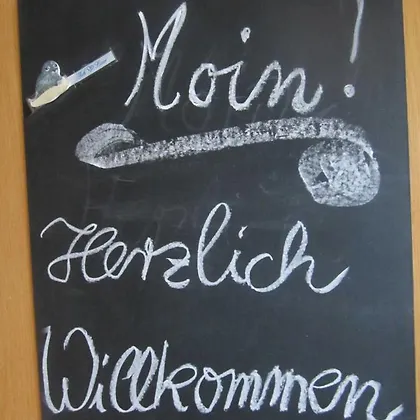 Moin!
Herzlich
Willkommen